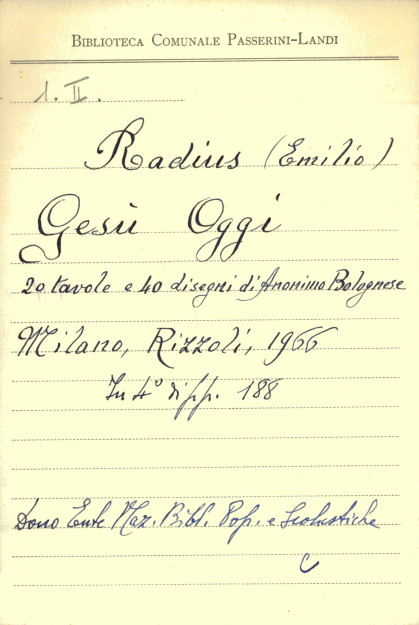 BIBLIOTECA COMUNALE PASSERINI-LANDI
1. II.
Radius (Emilio)
Gesù Oggi
20 tavole e 40 disegni di Anonimo Bolognese
Milano, Rizzoli, 1966
In 4° di pp. 188
Dono Ente Naz. Bibl. Pop. e Scolastiche
C